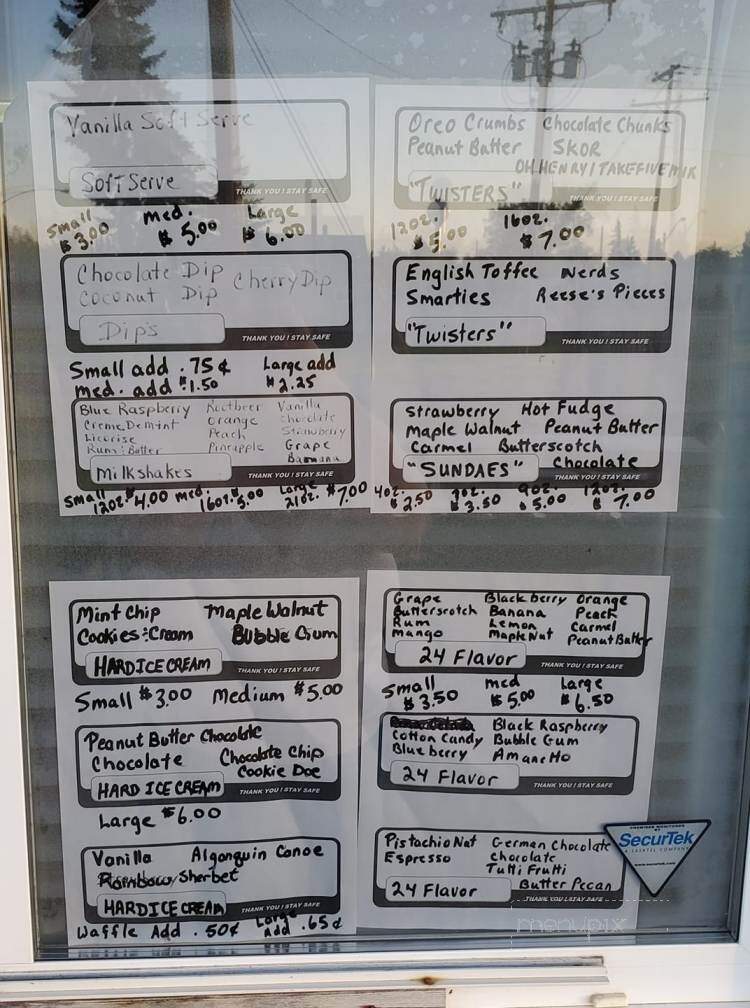 Vanilla Soft Serve
Soft Serve
THANK YOU! STAY SAFE
Small med. Large
$3.00 $5.00 $6.00
Chocolate Dip Cherry Dip
Coconut Dip
Dip's
THANK YOU! STAY SAFE
Small add .75¢ Large add
med. add $1.50 $2.25
Blue Raspberry Rootbeer Vanilla
Creme De mint Orange chocolate
Licorise Peach Strawberry
Rum & Butter Pineapple Grape
Banana
Milkshakes
THANK YOU! STAY SAFE
Small 12oz. $4.00 med. 16oz. $5.00 Large 21oz. $7.00
Oreo Crumbs Chocolate Chunks
Peanut Butter SKOR
OH.HENRY / TAKEFIVE MIX
"TWISTERS"
THANK YOU! STAY SAFE
12oz. 16oz.
$5.00 $7.00
English Toffee Nerds
Smarties Reese's Pieces
"Twisters"
THANK YOU! STAY SAFE
Strawberry Hot Fudge
Maple Walnut Peanut Butter
Carmel Butterscotch
"SUNDAES" Chocolate
THANK YOU! STAY SAFE
4oz. 7oz. 9oz. 12oz.
$2.50 $3.50 $5.00 $7.00
Mint Chip Maple Walnut
Cookies & Cream Bubble Gum
HARD ICE CREAM
THANK YOU! STAY SAFE
Small $3.00 Medium $5.00
Peanut Butter Chocolate
Chocolate Chocolate Chip
Cookie Doe
HARD ICE CREAM
THANK YOU! STAY SAFE
Large $6.00
Vanilla Algonquin Canoe
Rainbow Sherbet
HARD ICE CREAM
THANK YOU! STAY SAFE
Waffle Add .50¢ Large Add .65¢
Grape Blackberry Orange
Butterscotch Banana Peach
Rum Lemon Carmel
Mango Maple Nut Peanut Butter
24 Flavor
THANK YOU! STAY SAFE
Small med Large
$3.50 $5.00 $6.50
Black Raspberry
Cotton Candy Bubble Gum
Blueberry Amaretto
24 Flavor
THANK YOU! STAY SAFE
Pistachio Nut German Chocolate
Espresso chocolate
Tutti Frutti
Butter Pecan
24 Flavor
THANK YOU! STAY SAFE
SecurTek
A SASKTEL COMPANY
www.securtek.com
menupix